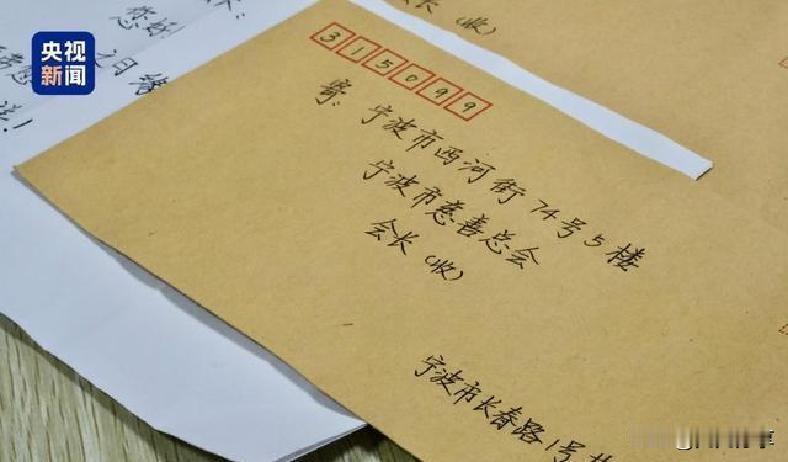 央视
新闻
您好
元日
315099
寄:
宁波市西河街74号5楼
宁波市慈善总会
会长(收)
宁波市长春路1号
(收)